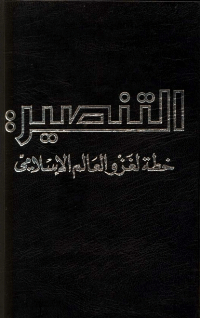 التنصير:
خطة لغزو العالم الإسلامي